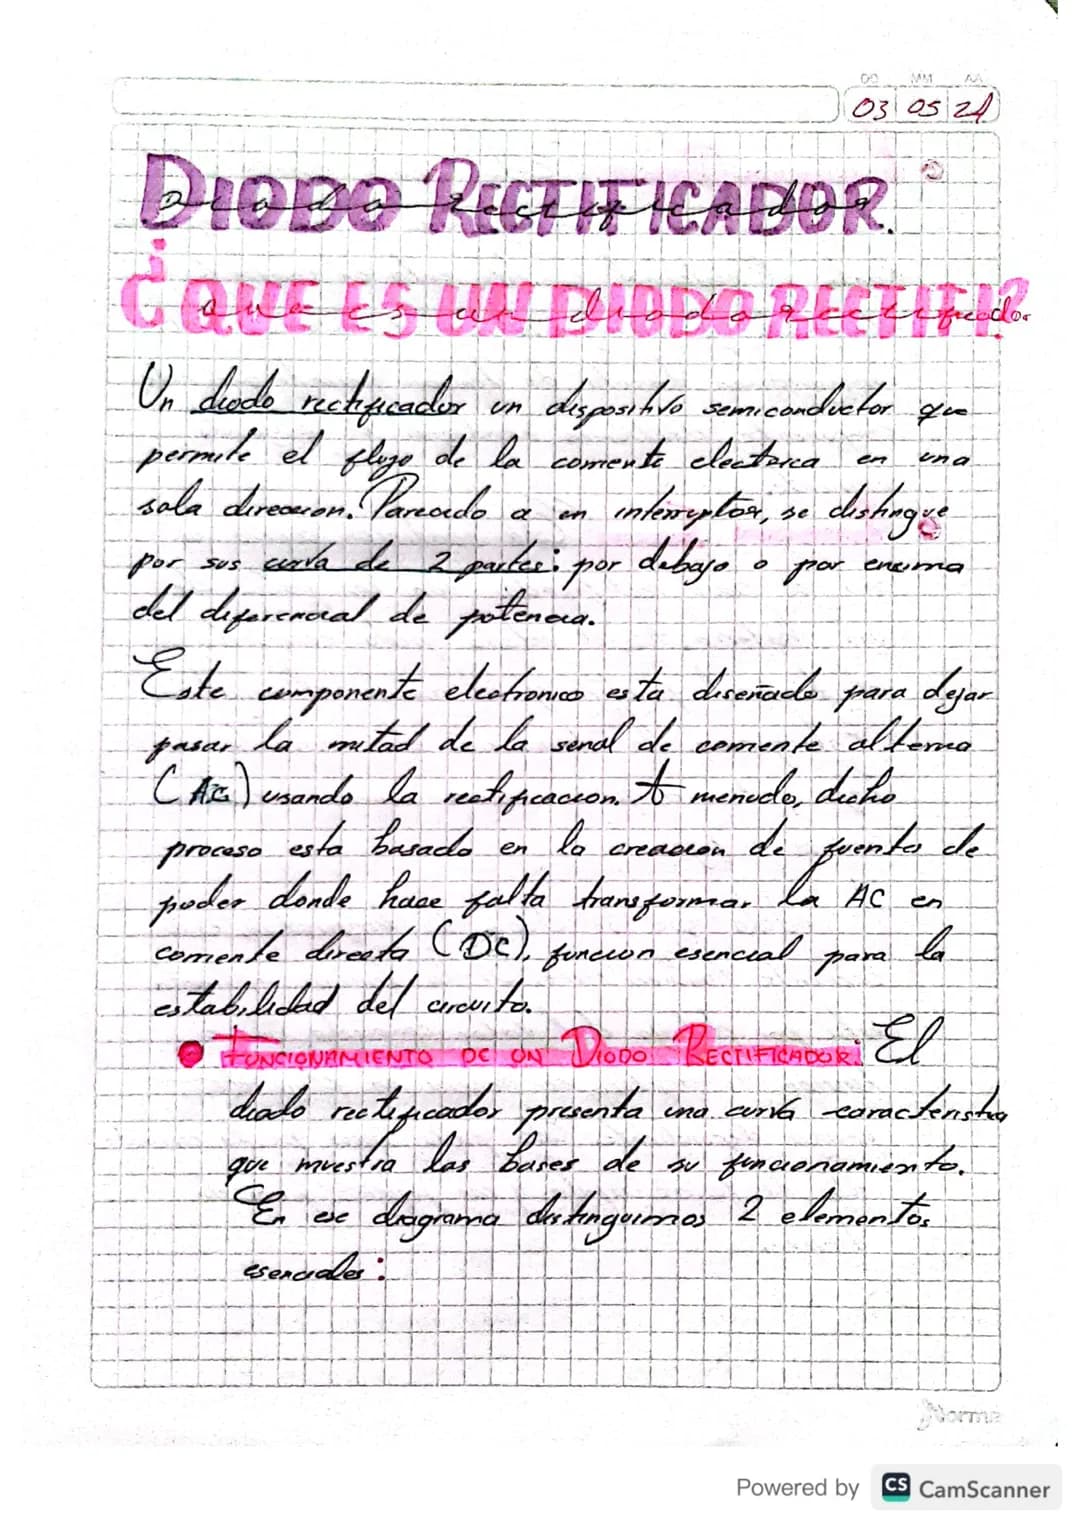 DD MM AA
03 05 21
DIODO RECTIFICADOR.
Diodo Rectificador
¿QUE ES UN DIODO RECTIFI?
que es un diodo rectificador
Un diodo rectificador un dispositivo semiconductor que
permite el flujo de la corriente electrica en una
sola direccion. Parecido a un interruptor, se distingue
por sus curva de 2 partes: por debajo o por encima
del diferencial de potencia.
Este componente electronico esta diseñado para dejar
pasar la mitad de la senal de corriente alterna
(AC) usando la rectificacion. A menudo, dicho
proceso esta basado en la creacion de fuentes de
poder donde hace falta transformar la AC en
corriente directa (DC), funcion esencial para la
estabilidad del circuito.
• FUNCIONAMIENTO DE UN DIODO RECTIFICADOR: El
diodo rectificador presenta una curva caracteristica
que muestra las bases de su funcionamiento.
En ese diagrama distinguimos 2 elementos
esenciales:
Norma
Powered by CS CamScanner